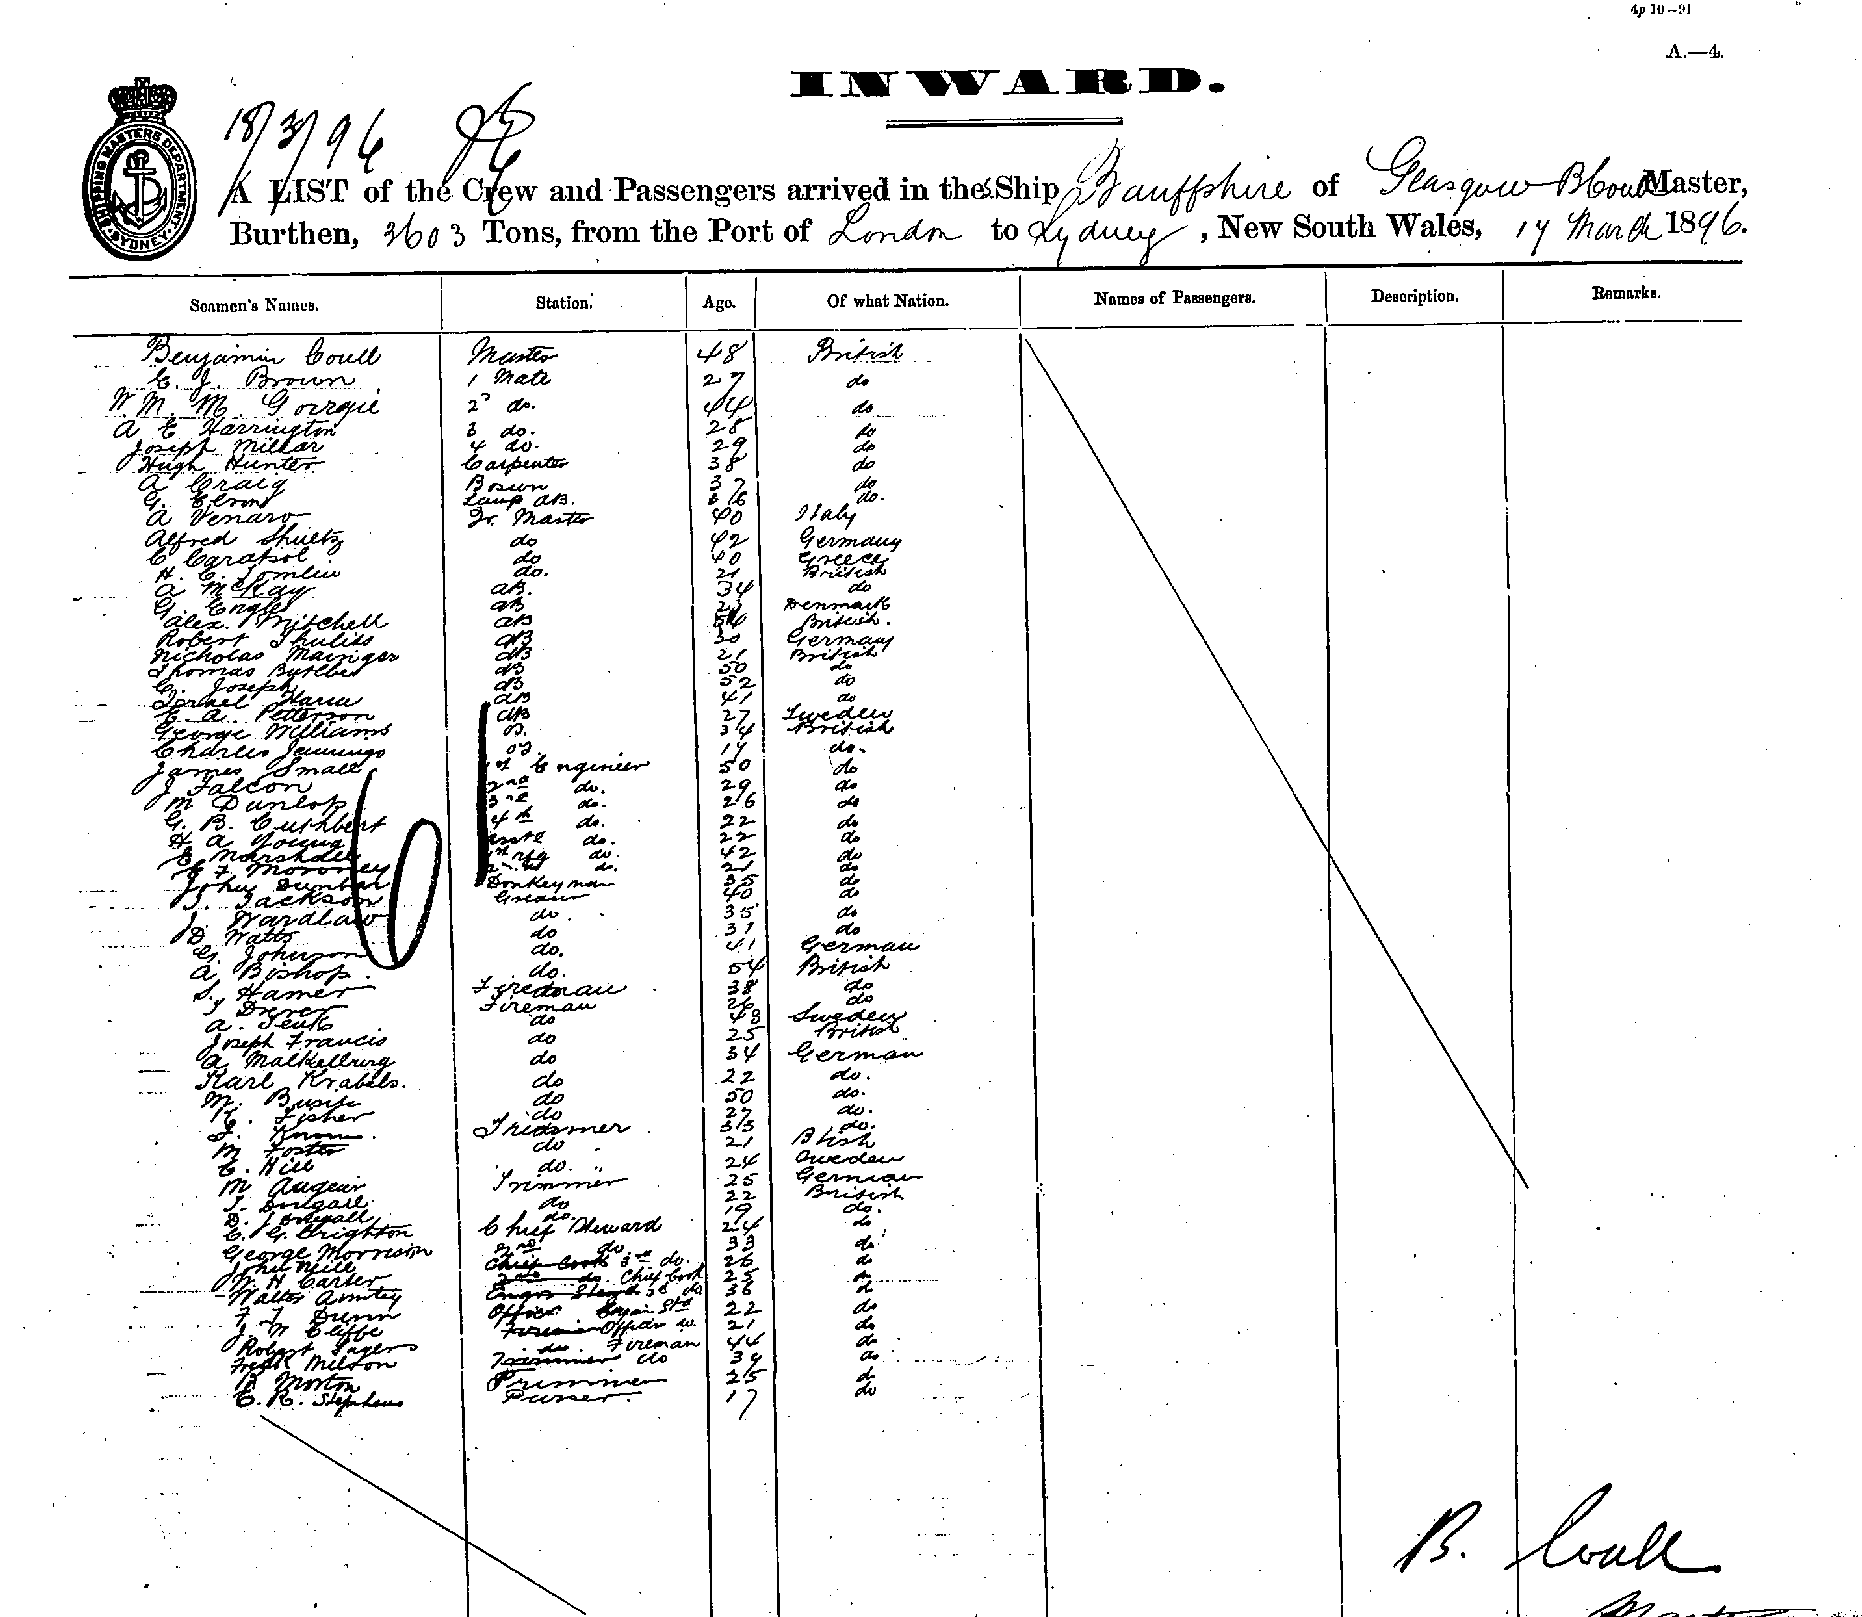 4p 10-91
A.—4.
INWARD.
18/3/96
SHIPPING MASTERS DEPARTMENT SYDNEY
A LIST of the Crew and Passengers arrived in the s. Ship Banffshire of Glasgow B Coull Master,
Burthen, 3603 Tons, from the Port of London to Sydney, New South Wales, 17 March 1896.
Seamen's Names. Station. Age. Of what Nation. Names of Passengers. Description. Remarks.
Benjamin Coull Master 48 British
C. J. Brown 1 Mate 27 do
W. M. M. Goirgie 2nd do. 44 do
A E Harrington 3 do. 28 do
Joseph Millar 4 do. 29 do
Hugh Hunter Carpenter 38 do
A Craig Bosun 37 do
G. Elson Lamp AB. 36 do.
A Venaro Qr. Master 40 Italy
Alfred Shultz do 42 Germany
C Carapol do 40 Greece
H. C. Tomlin do. 21 British
A McKay AB. 34 do
G. Engles AB Denmark
Alex. Mitchell AB 54 British.
Robert Thuliss AB 30 Germany
Nicholas Mainger AB 21 British
Thomas Butcher AB 50 do
C. Joseph AB 52 do
Israel Harm AB 41 do
C. A. Petterson AB 27 Sweden
George Williams 34 British
Charles Jennings OS 17 do.
James Small 1st Engineer 50 do
J Falcon 2nd do. 29 do
M Dunlop 3rd do. 26 do
G. B. Cuthbert 4th do. 22 do
H A Young do. 22 do
C Marshall 1st rfg do. 42 do
G F Moroney do. 21 do
John Dunbar Donkeyman 35 do
J. Jackson Greaser 40 do
J. Wardlaw do. 35 do
D Watts do 31 do
G. Johnson do. 41 German
A Bishop. do. 54 British
S. Hamer Fireman 38 do
J Drever Fireman 26 do
A. Tenk do 43 Sweden
Joseph Francis do 25 British
A Malkellburg do 34 German
Karl Krabels. do 22 do.
M. Busik do 50 do.
K. Fisher do 27 do.
J. Knom. Trimmer 33 do.
M Foster do 21 Btish
C. Hill do. 24 Sweden
M Augeir Trimmer 25 German
J. Dougall do 22 British
D. J Dougall do. 19 do.
C. G. Crighton Chief Steward 24 do
George Morrison 2nd do 33 do
John Mill Chief Cook 3rd do. 26 do
W. H Carter 2nd do. Chief Cook 25 do
Walter Armtey 36 do
F. J. Drunn Officers 22 do
J. W Cliffe Officers do 21 do
Robert Sagers do. Fireman 44 do
Fredk Milson Trimmer do 34 do
B Morton Trimmer 25 do
C. R. Stephens Purser. 17 do
B. Coull
Master